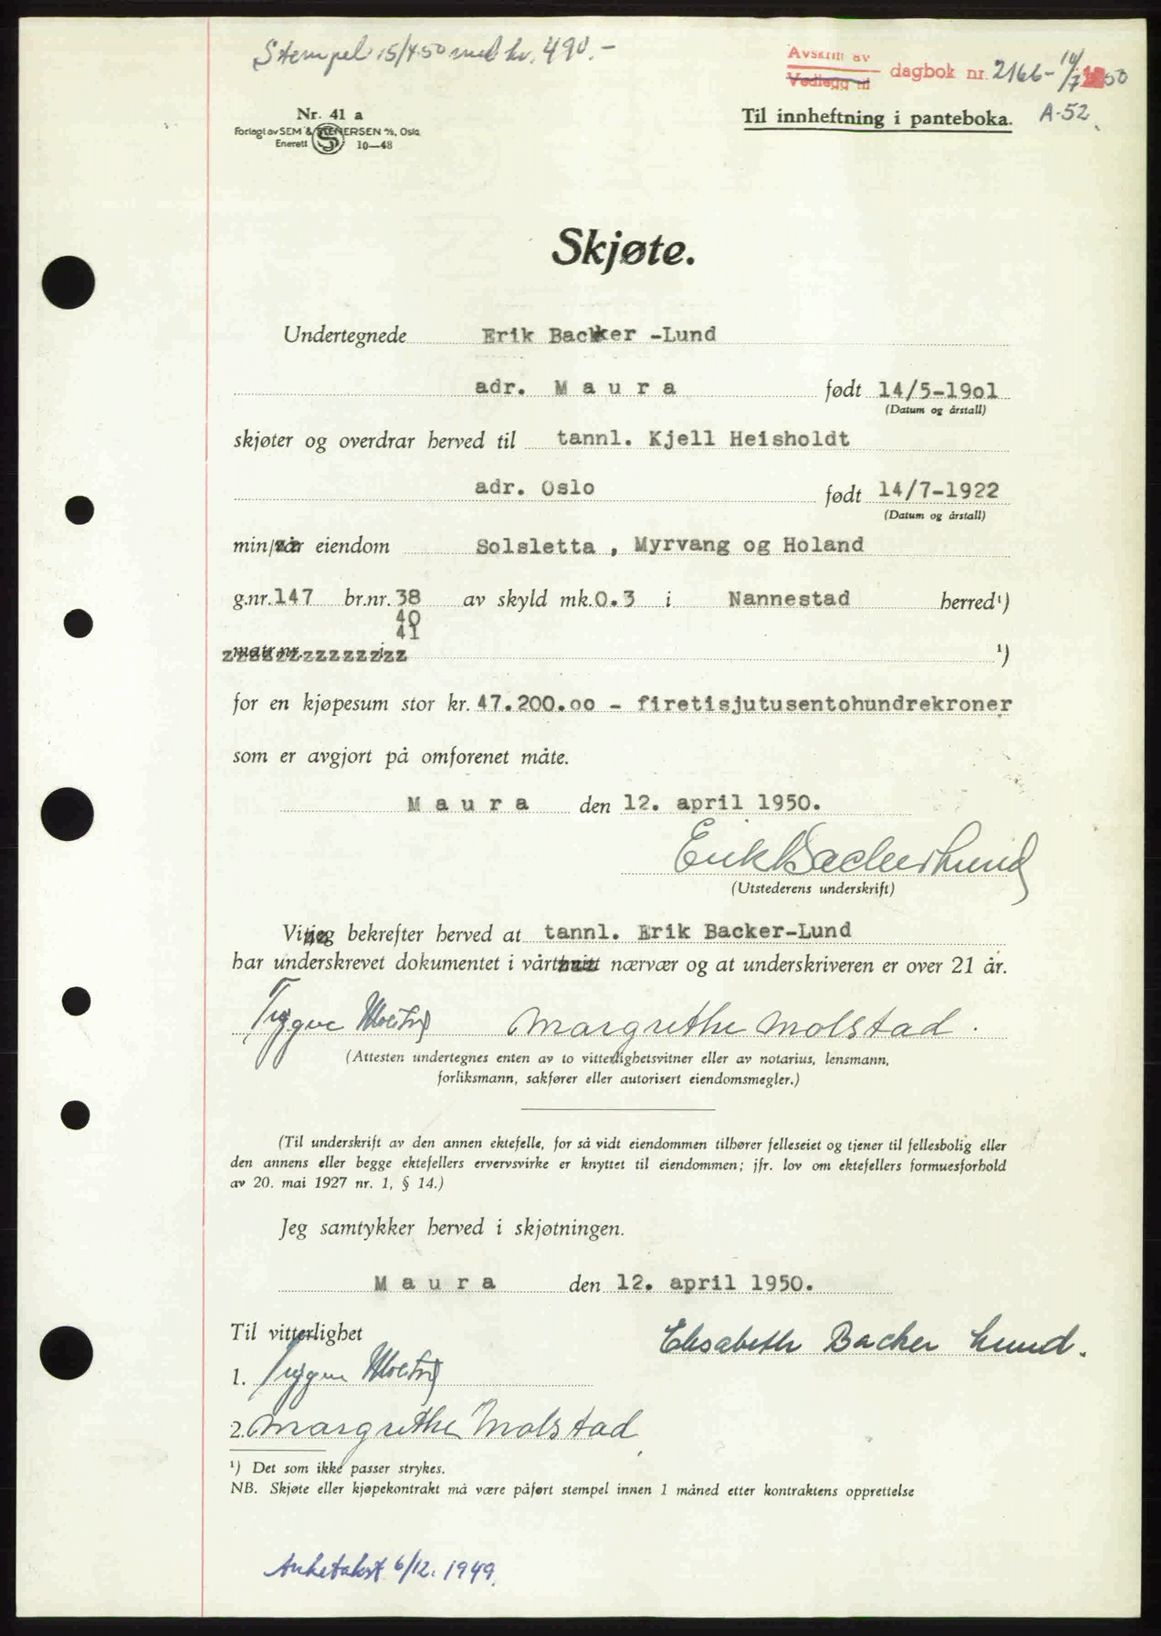 Stempel 15/4.50 med kr. 490.-
Avskrift av
Vedlegg til
dagbok nr. 2166-
1950
A-52
Nr. 41 a
Forlagt av SEM & STENERSEN A/S, Oslo
Enerett S 10—48
Til innheftning i panteboka.
Skjøte.
Undertegnede Erik Backer -Lund
adr. M a u r a født 14/5-19o1
(Datum og årstall)
skjøter og overdrar herved til tannl. Kjell Heisholdt
adr. Oslo født 14/7-1922
(Datum og årstall)
min/vår eiendom Solsletta , Myrvang og Holand
g.nr. 147 br.nr. 38 av skyld mk. 0.3 i Nannestad herred¹)
40
41
matr.nr. i ¹)
for en kjøpesum stor kr. 47.200.oo - firetisjutusentohundrekroner
som er avgjort på omforenet måte.
M a u r a den 12. april 1950.
Erik Backer Lund
(Utstederens underskrift)
Vi/jeg bekrefter herved at tannl. Erik Backer-Lund
har underskrevet dokumentet i vårt/mitt nærvær og at underskriveren er over 21 år.
Trygve Margrethe Molstad.
(Attesten undertegnes enten av to vitterlighetsvitner eller av notarius, lensmann,
forliksmann, sakfører eller autorisert eiendomsmegler.)
(Til underskrift av den annen ektefelle, for så vidt eiendommen tilhører felleseiet og tjener til fellesbolig eller
den annens eller begge ektefellers ervervsvirke er knyttet til eiendommen; jfr. lov om ektefellers formuesforhold
av 20. mai 1927 nr. 1, § 14.)
Jeg samtykker herved i skjøtningen.
M a u r a den 12. april 1950.
Til vitterlighet
Elisabeth Backer Lund.
1. Trygve
2. Margrethe Molstad
¹) Det som ikke passer strykes.
NB. Skjøte eller kjøpekontrakt må være påført stempel innen 1 måned etter kontraktens opprettelse
Anketakst 6/12. 1949.